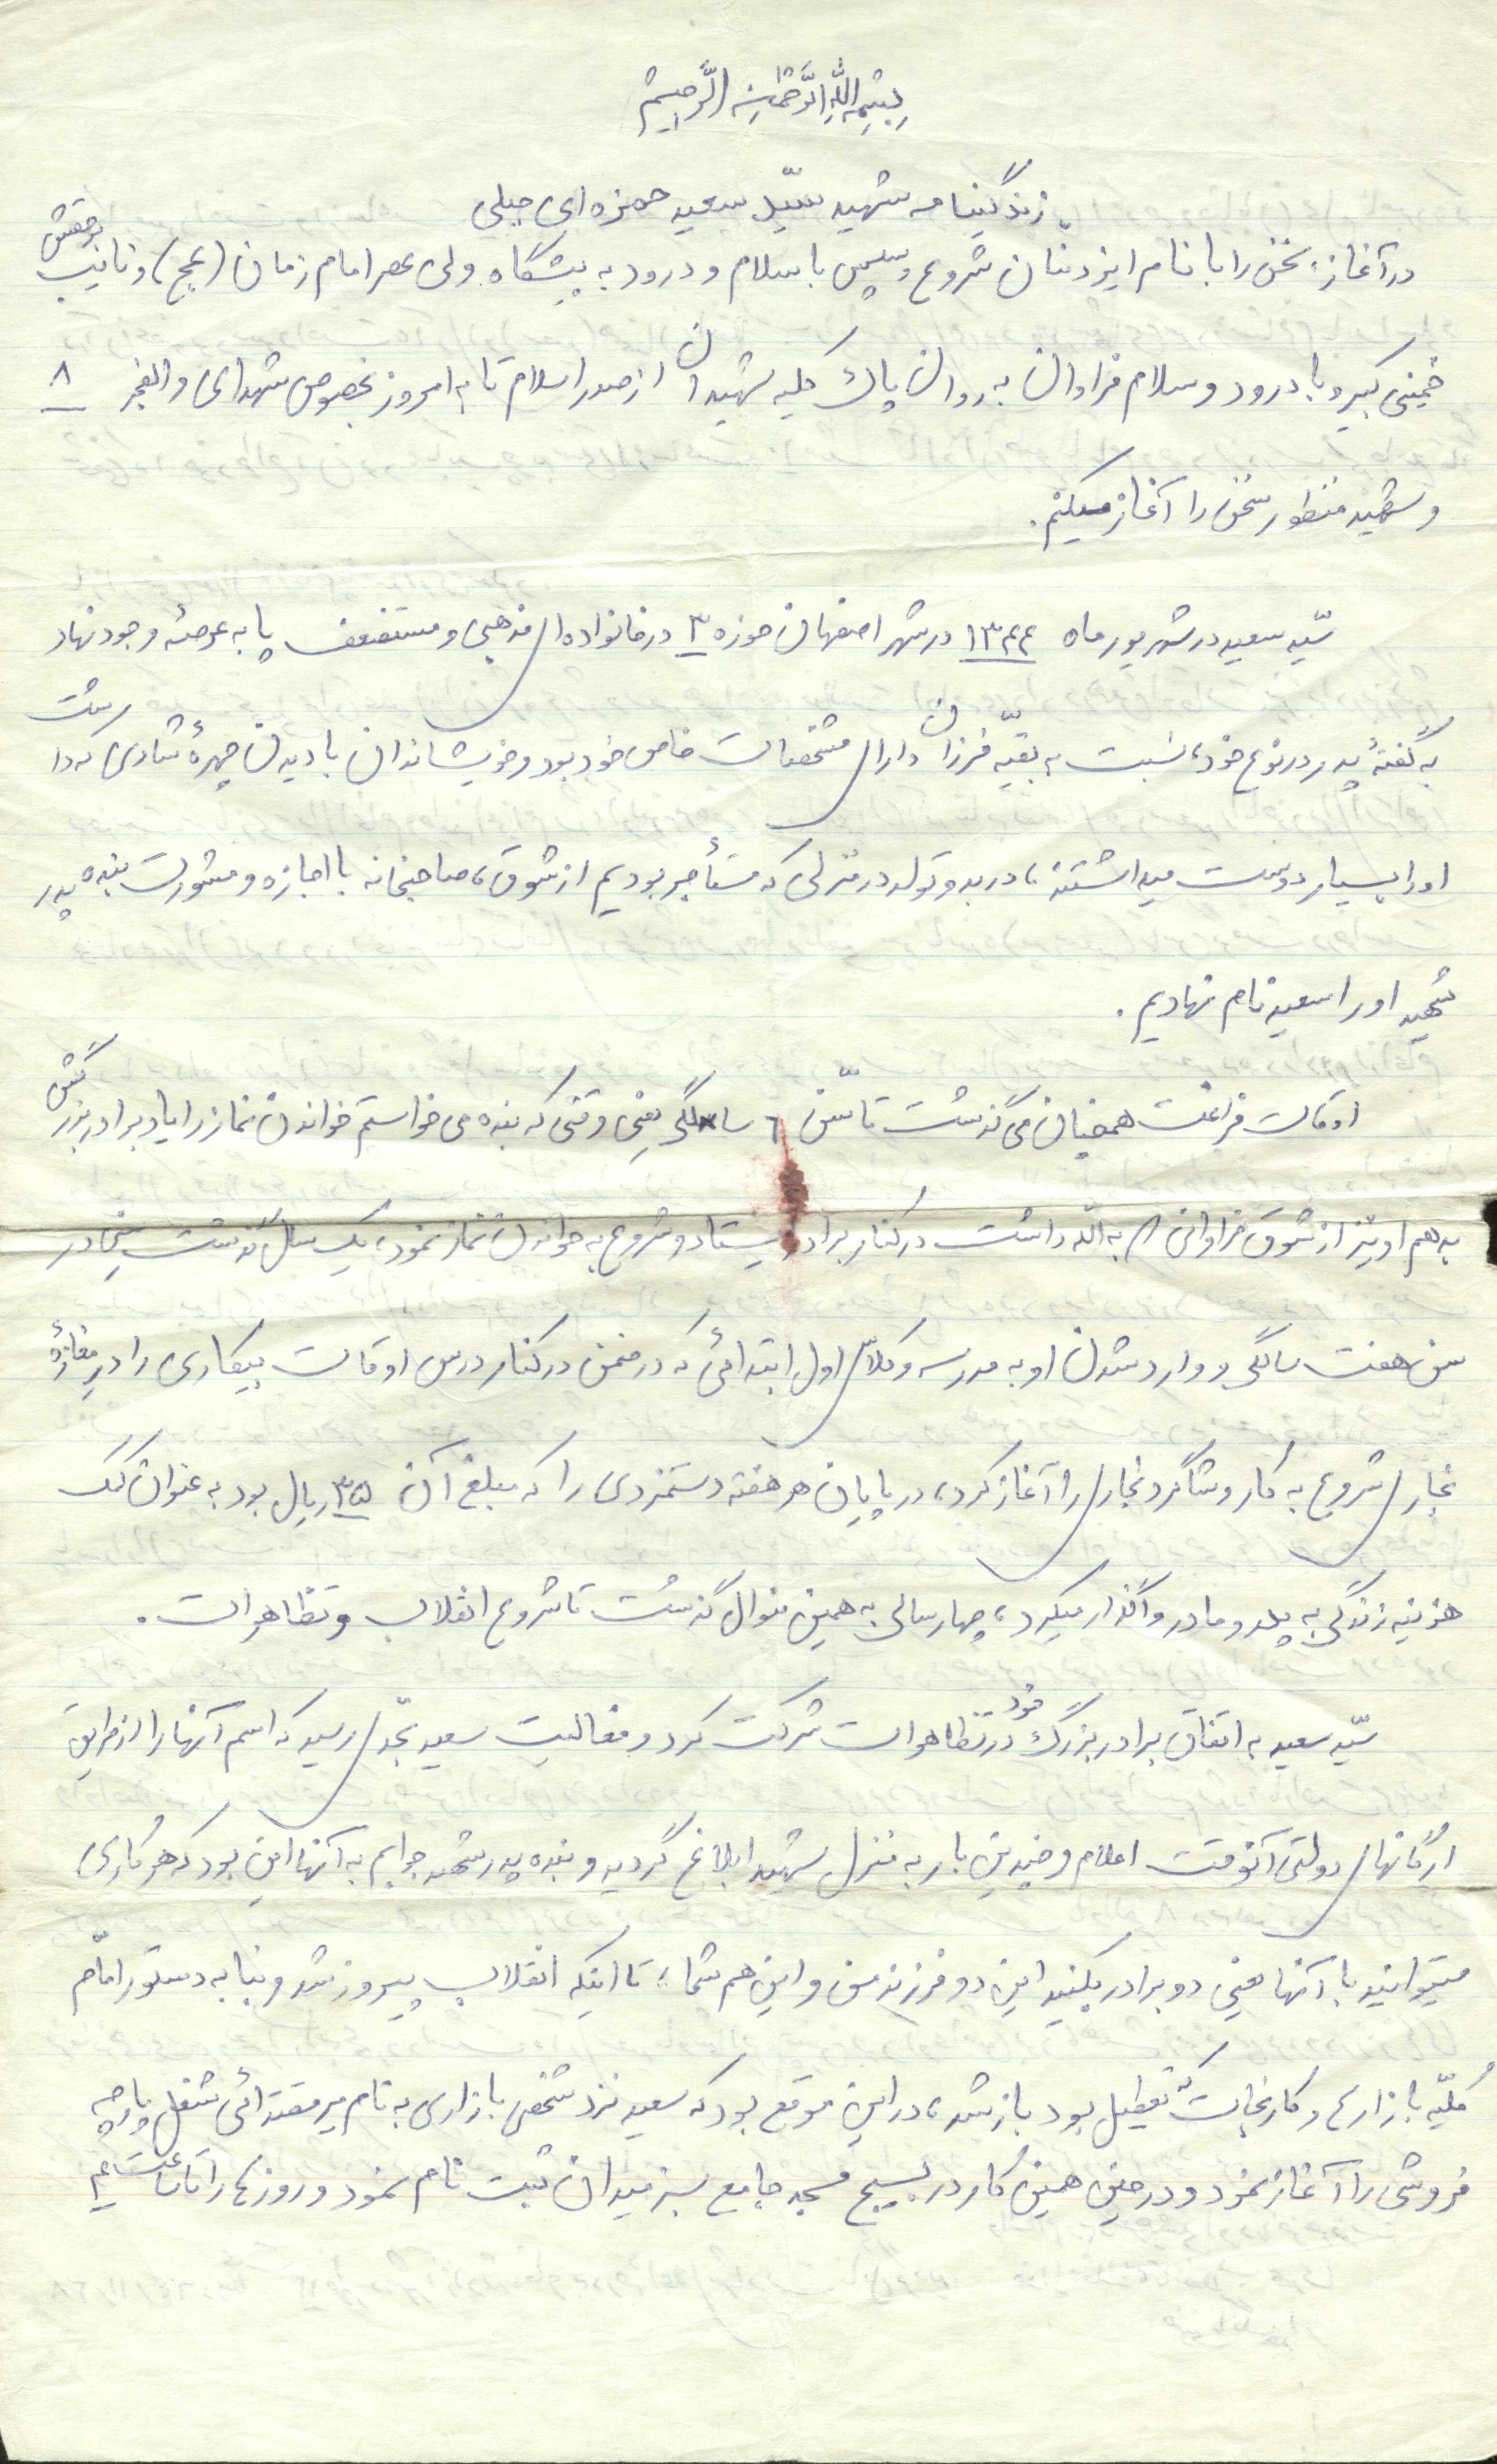 بِسْمِ اللهِ الرَّحْمٰنِ الرَّحِیمْ
زندگینامه شهید سیّد سعید حمزه ای جبلی
در آغاز، سخن را با نام ایزد منان شروع و سپس با سلام و درود به پیشگاه ولی عصر امام زمان (عج) و نائب برحقش
خمینی کبیر و با درود و سلام فراوان به روان پاک کلیه شهیدان از صدر اسلام تا به امروز بخصوص شهدای والفجر ۸
و شهید منظور سخن را آغاز میکنم.
سیّد سعید در شهریور ماه ۱۳۴۴ در شهر اصفهان حوزه ۳ در خانواده ای مذهبی و مستضعف پا به عرصهٔ وجود نهاد
به گفتهٔ پدر در نوع خود، نسبت به بقیّه فرزندان دارای مشخصات خاص خود بود و خویشاندان با دیدن چهرهٔ شادی که داشت
او را بسیار دوست میداشتند، در بدو تولد در منزلی که مستأجر بودیم از شوق، صاحبخانه با اجازه و مشورت بنده پدر
شهید او را سعید نام نهادیم.
اوقات فراغت همچنان می گذشت تا سّن ۶ سالگی یعنی وقتی که بنده می خواستم خواندن نماز را یاد برادر بزرگش
بدهم او نیز از شوق فراوانی که به الله داشت در کنار برادر ایستاد و شروع به خواندن نماز نمود، یک سال گذشت یعنی در
سن هفت سالگی و وارد شدن او به مدرسه و کلاس اول ابتدائی که در ضمن در کنار درس اوقات بیکاری را در مغازهٔ
نجاری شروع به کار و شاگرد نجاری را آغاز کرد، در پایان هر هفته دستمزدی را که مبلغ آن ۳۵ ریال بود به عنوان کمک
هزینه زندگی به پدر و مادر واگذار میکرد، چهار سالی به همین منوال گذشت تا شروع انقلاب و تظاهرات.
سیّد سعید به اتفاق برادر بزرگ خود در تظاهرات شرکت کرد و فعالیت سعید بحّدی رسید که اسم آنها را از طریق
ارگانهای دولتی آنوقت اعلام و چندین بار به منزل شهید ابلاغ گردید و بنده پدر شهید جوابم به آنها این بود که هر کاری
میتوانید با آنها یعنی دو برادر بکنید این دو فرزند من و این هم شما، تا اینکه انقلاب پیروز شد و بنا به دستور امام
کُلیّه بازارها و کارخجات که تعطیل بود باز شد، در این موقع بود که سعید نزد شخص بازاری به نام میر مقتدائی شغل پارچه
فروشی را آغاز نمود و در حین همین کار در بسیج مسجد جامع سبزمیدان ثبت نام نمود و روزها را تا ساعت ۴